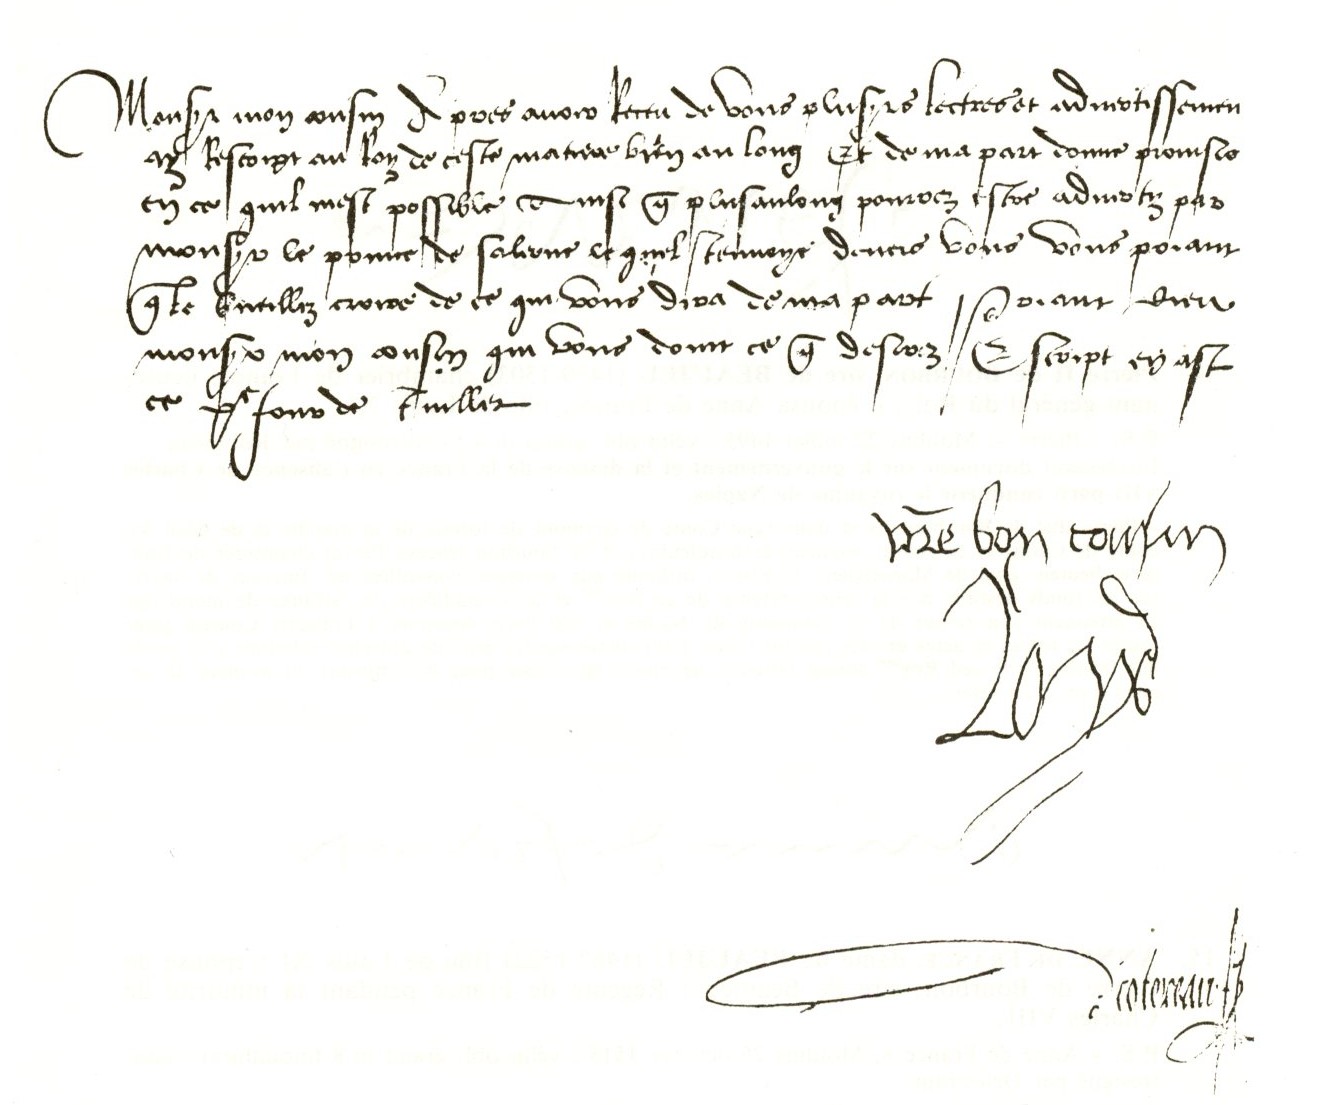 Monsr mon cousin Apres avoir Receu de vous plusrs lectres et advertissemen
ay Rescript au Roy de ceste matiere bien au long Et de ma part donne provisio
en ce quil mest possible Ainsi q plus au long pourrez estre advertz par
monsr le prince de salerne lequel Jenvoye devers vous vous priant
q le vueillez croire de ce qui vous dira de ma part Priant dieu
monsr mon cousin qui vous doint ce q desirez Escript en ast
ce jour de Juillet
vre bon cousin
Loys
Cotereau